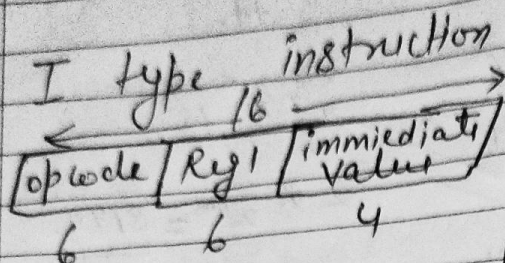 I type instruction
16
opcode Reg1 immiediate
value
6 6 4